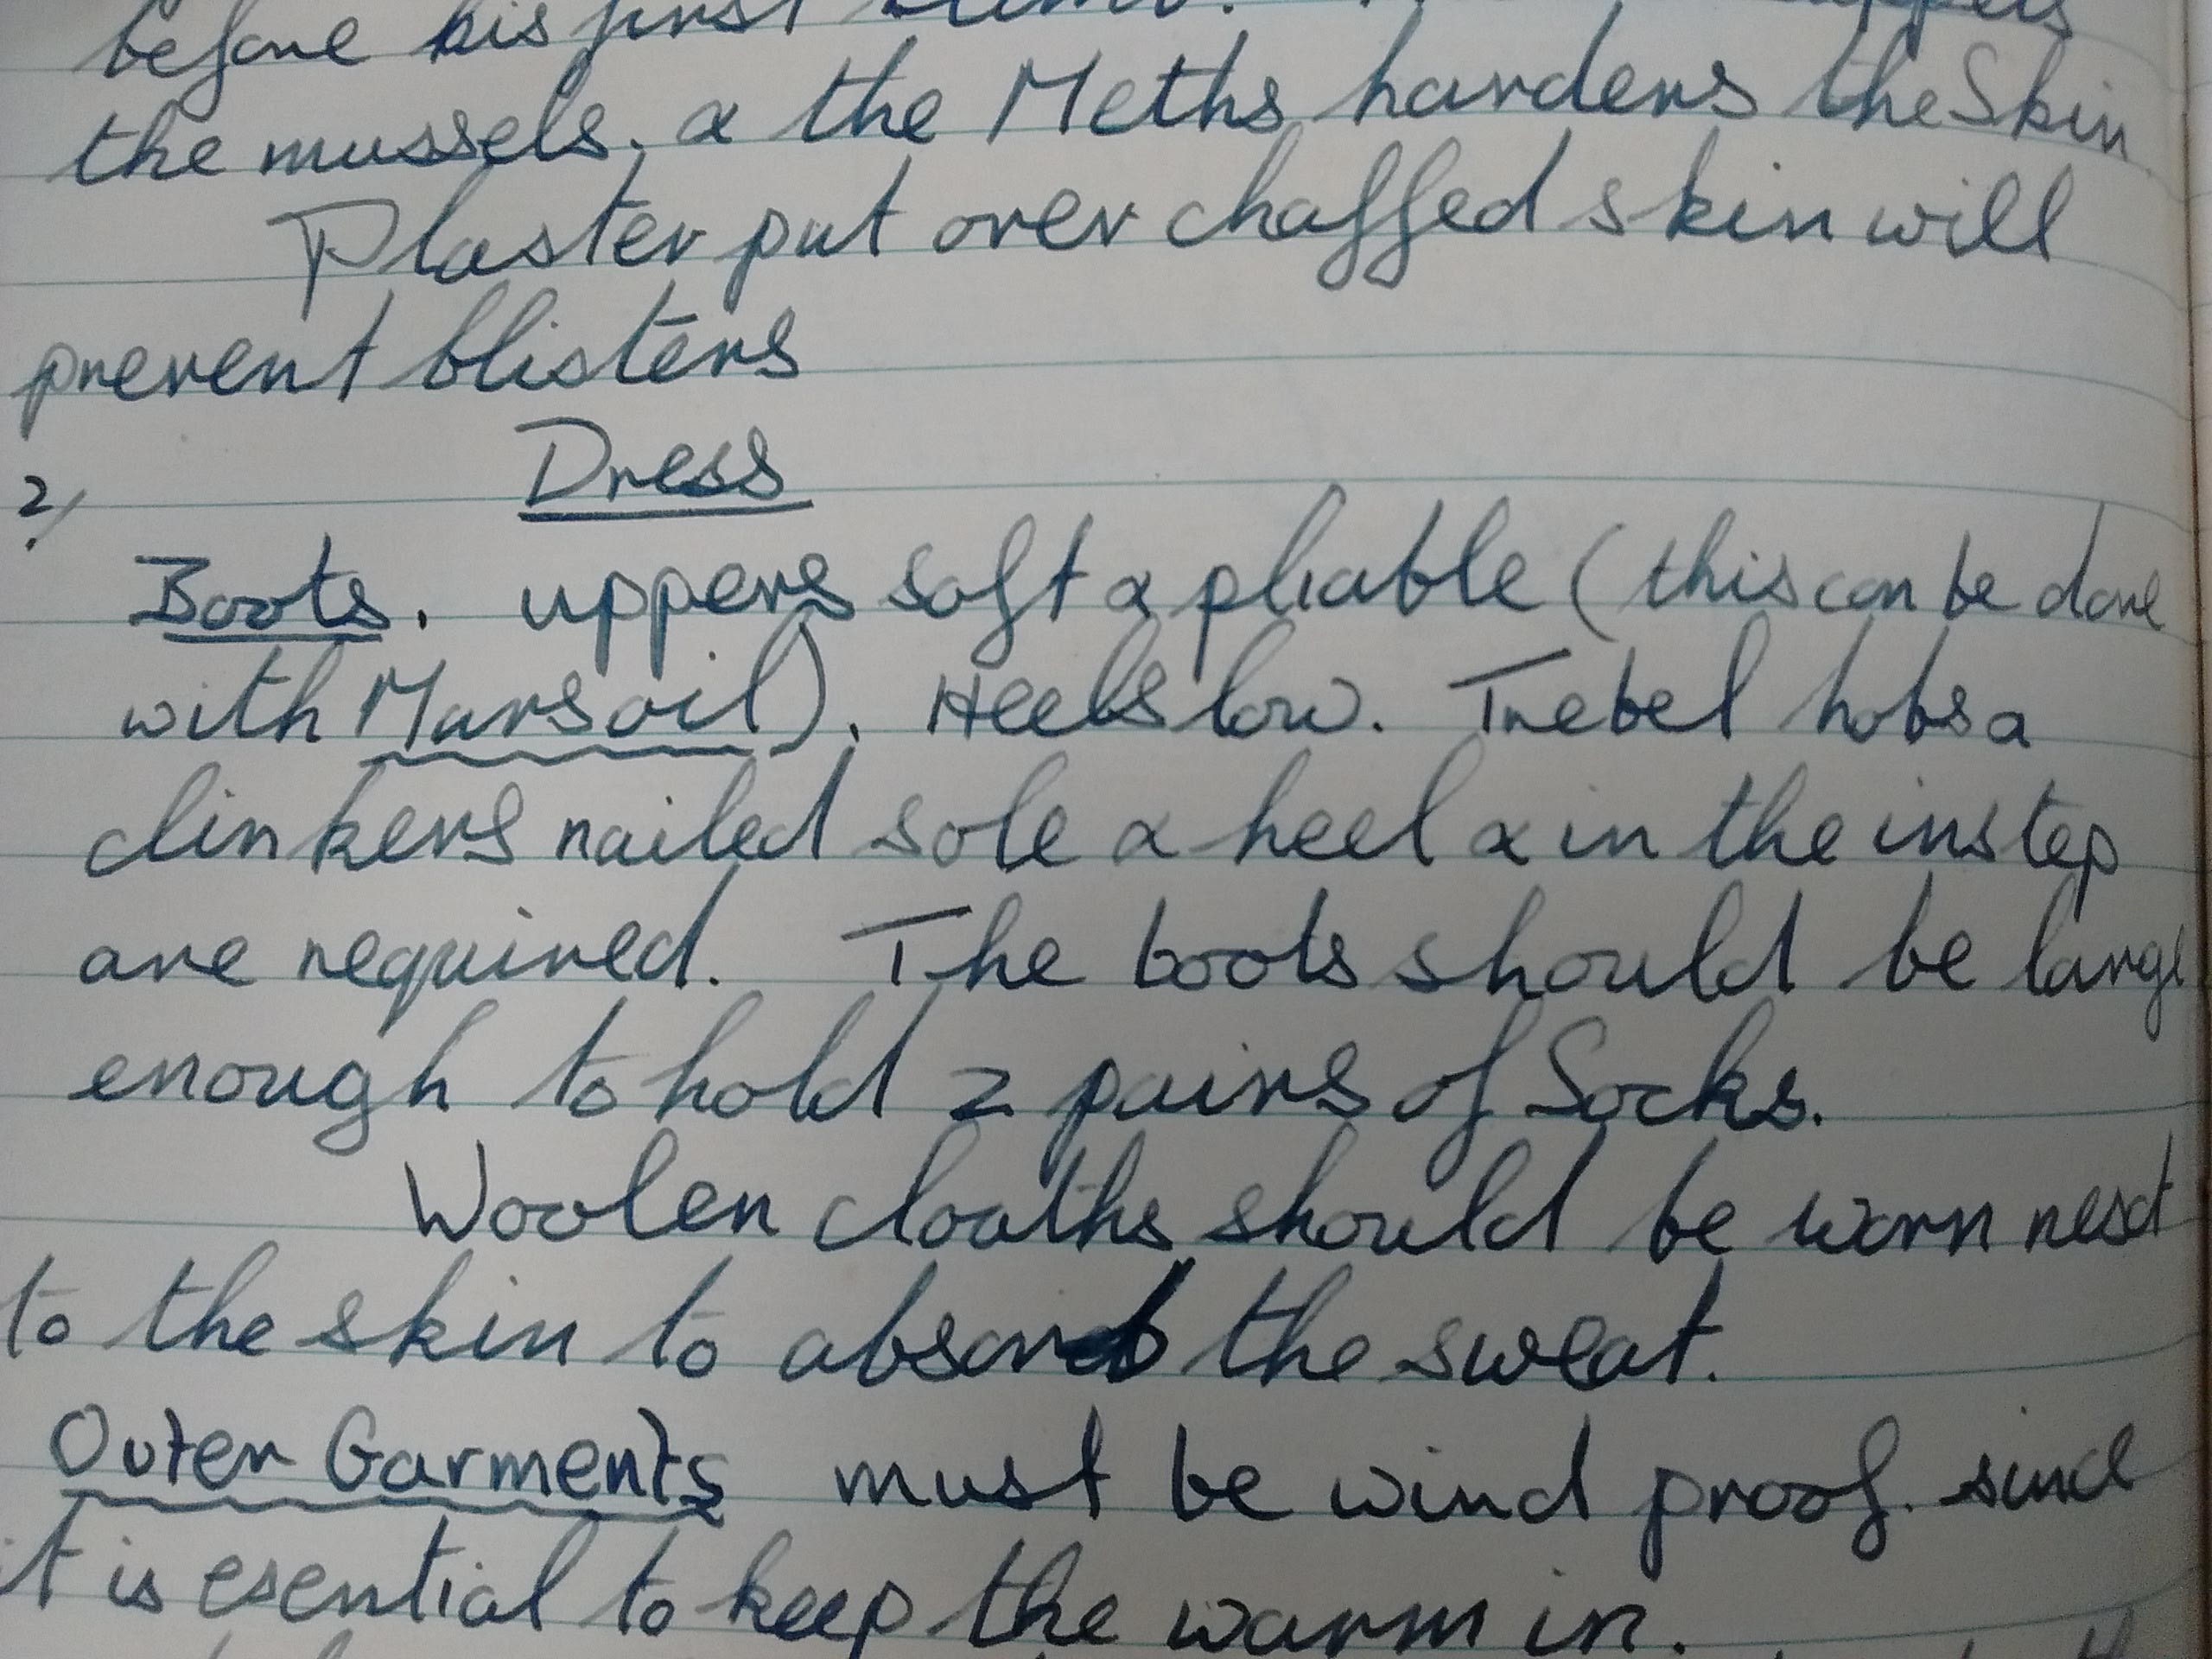 before his first climb.
the mussels. & the Meths hardens the Skin
Plaster put over chaffed skin will
prevent blisters
Dress
2/
Boots. uppers soft & pliable (this can be done
with Mars oil). Heels low. Trebel hobs &
clinkers nailed sole & heel & in the instep
are required. The boots should be large
enough to hold 2 pairs of Socks.
Woolen cloaths should be worn next
to the skin to absorb the sweat.
Outer Garments must be wind proof. since
it is esential to keep the warm in.